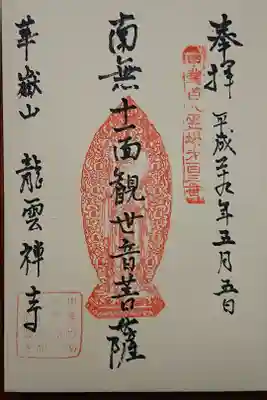 奉拝 平成廿九年五月五日
南無十一面観世音菩薩
華嶽山 龍雲禅寺